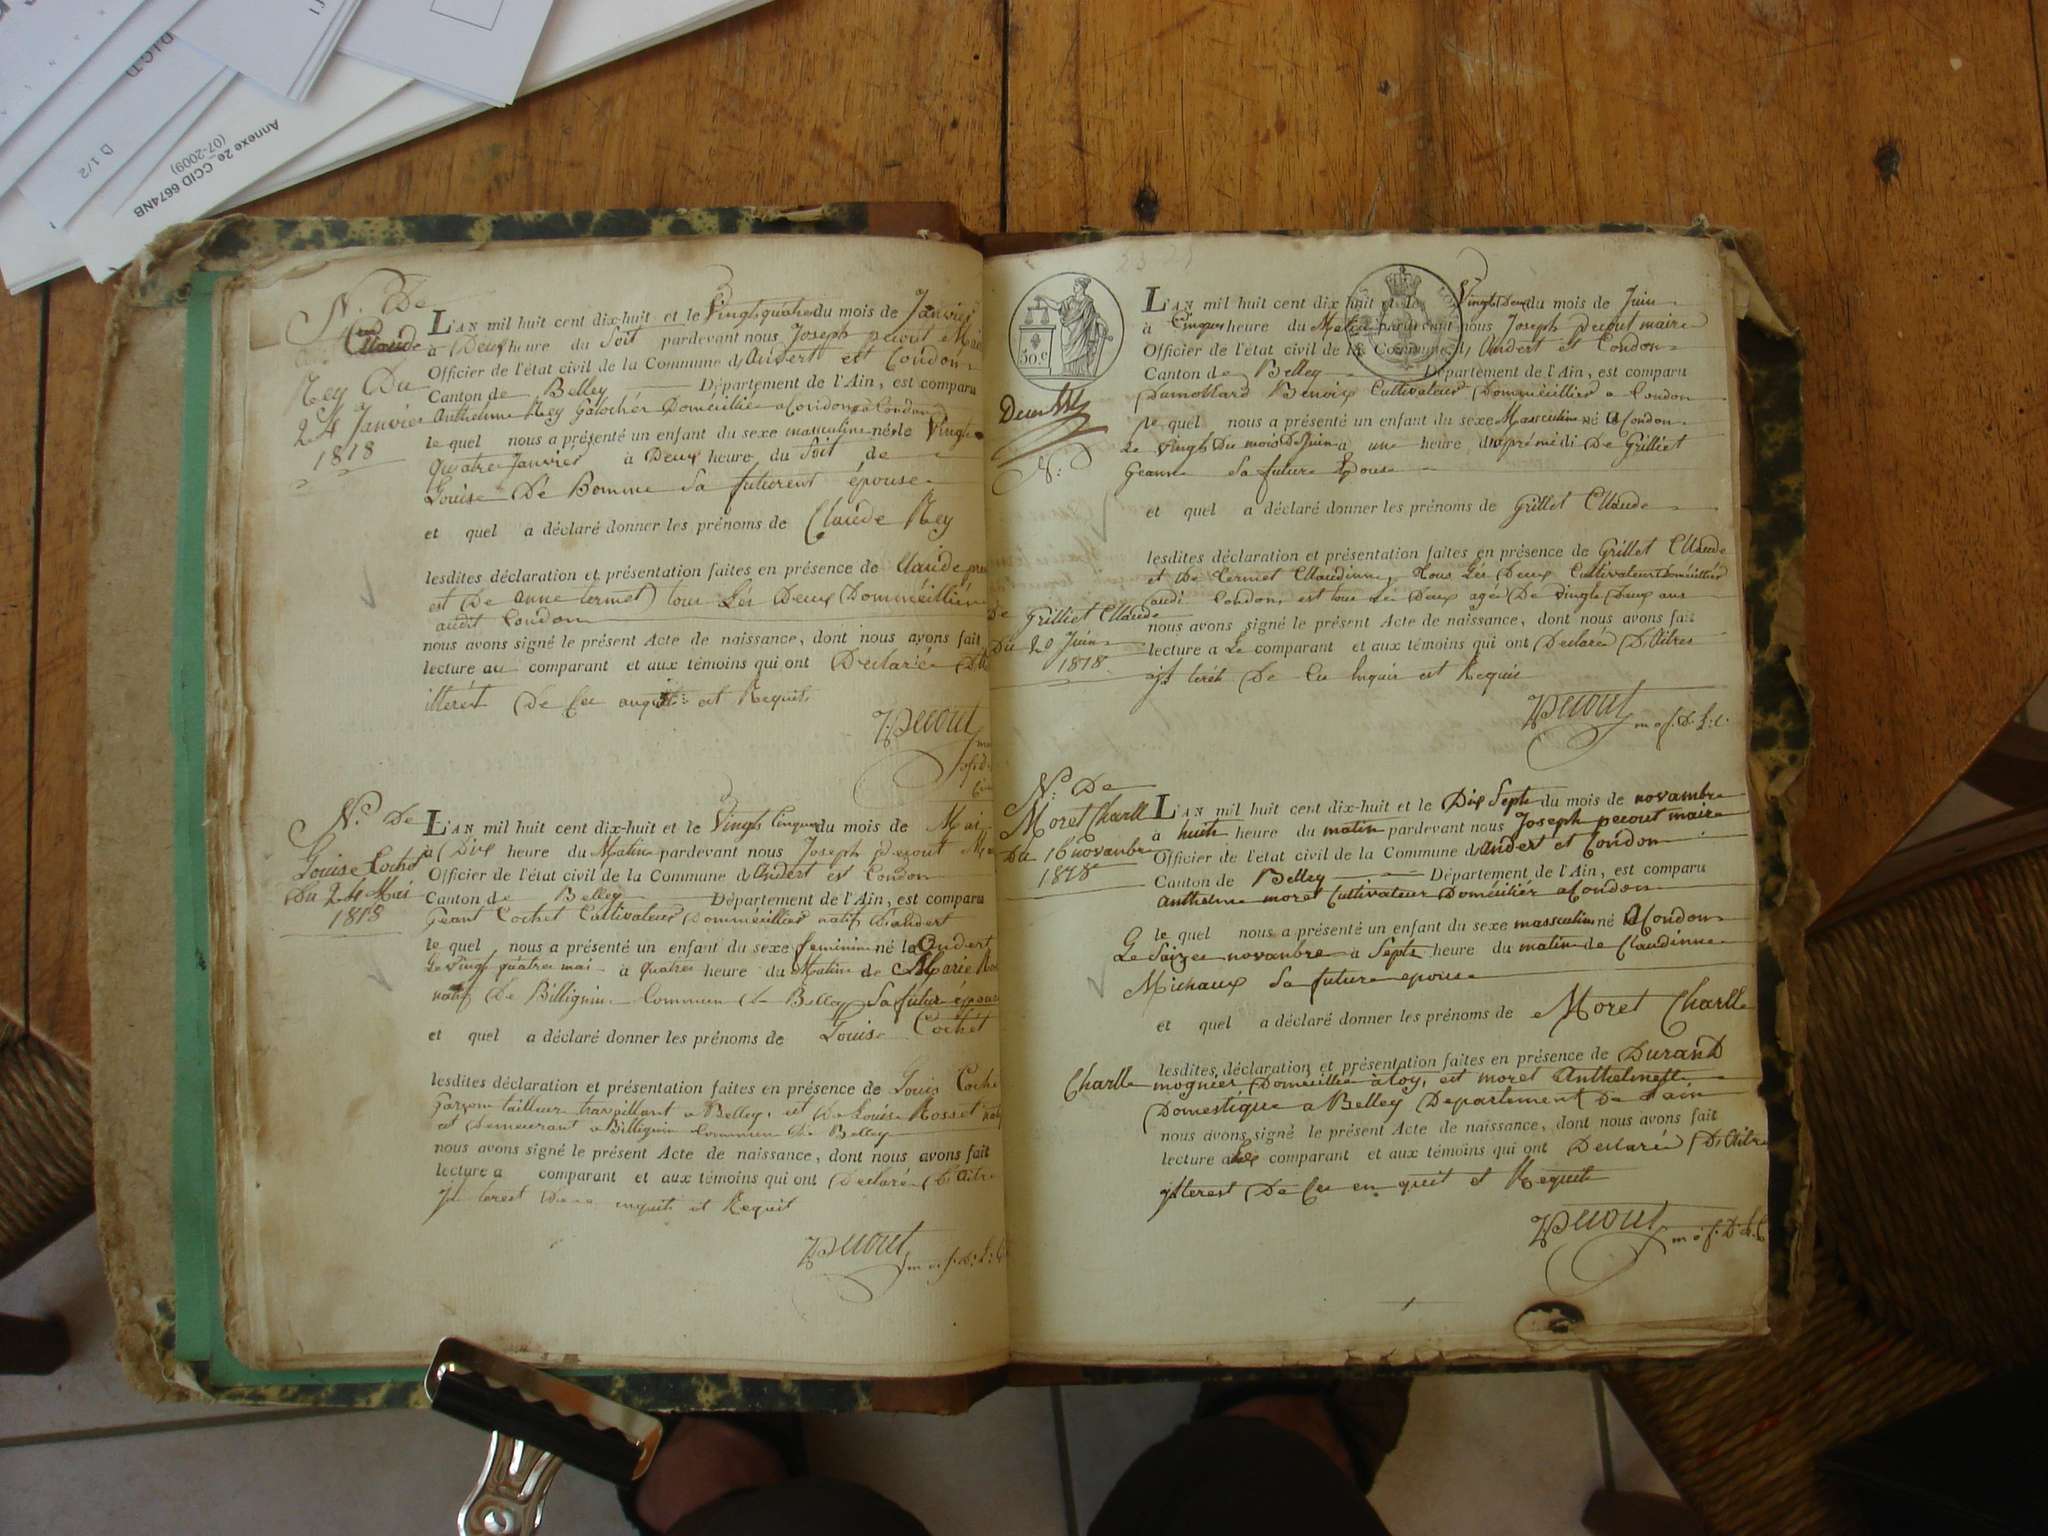 D.I.C.T)
D 1/2
Annexe 2e_CCID 6674NB
(07-2009)
N.º De
Claude
Rey Du
24 Janvier
1818
L'AN mil huit cent dix-huit et le Vingt quatre du mois de Janvier
à Deux heure du Soit pardevant nous Joseph pecout Mai
Officier de l'état civil de la Commune d'Andert est Condon
Canton de Belley Département de l'Ain, est comparu
Anthelme Rey Domeicilié a Condon
le quel nous a présenté un enfant du sexe masculin né le Vingt
quatre Janvier à Deux heure du Soit de
Louise De Bomme Sa futurent épouse
et quel a déclaré donner les prénoms de Claude Rey
lesdites déclaration et présentation faites en présence de Claude
est De anne termet tous Les Deux Domméilliés
audit Condon
nous avons signé le présent Acte de naissance, dont nous avons fait
lecture au comparant et aux témoins qui ont Declarée
itterest De Ce est Requit
JPecout
N.º De
Louise Cochet
Du 24 Mai
1818
L'AN mil huit cent dix-huit et le Vingt Cinque du mois de Mai
à Dix heure du Matin pardevant nous Joseph pecout Ma
Officier de l'état civil de la Commune d'Andert est Condon
Canton de Belley Département de l'Ain, est comparu
Geant Cochet Cultivateur Domméillier natif d'andert
le quel nous a présenté un enfant du sexe feminin né la Andert
Le Vingt quatre mai à quatre heure du Matin de Marie Ros
natif De Billignin Commun De Belley Sa future épouse
et quel a déclaré donner les prénoms de Louise Cochet
lesdites déclaration et présentation faites en présence de Louis Coche
garçon tailleur travaillant a Belley, et De Louise Rosset natif
et Demeurant a Billignin Commun De Belley
nous avons signé le présent Acte de naissance, dont nous avons fait
lecture a comparant et aux témoins qui ont Declarée
enquit et Requit
JPecout
50.c
N.º
De Grilliet Claude
Du 20 Juin
1818
L'AN mil huit cent dix-huit et le Vingt Deux du mois de Juin
à Cinque heure du Matin pardevant nous Joseph Pecout maire
Officier de l'état civil de la Commune d'Andert et Condon
Canton de Belley Département de l'Ain, est comparu
Dumollard Benoix Cultivateur Domméillier a Condon
le quel nous a présenté un enfant du sexe Masculin né a Condon
Le vingt Du mois De Juin à une heure du De Grilliet
Geanne Sa future Epouse
et quel a déclaré donner les prénoms de Grillet Claude
lesdites déclaration et présentation faites en présence de Grillet Claude
et De termet Claudinne, tous Les Deux Cultivateurs Domméilliés
audi Condon, est tous Les Deux agée De vingt Deux ans
nous avons signé le présent Acte de naissance, dont nous avons fait
lecture a Le comparant et aux témoins qui ont Declarée
De Ce enquit et Requit
JPecout m o f. D. L. C.
N.º De
Moret Charlle
Du 16 novanbre
1818
L'AN mil huit cent dix-huit et le Dix Sept du mois de novambre
à huit heure du matin pardevant nous Joseph pecout maire
Officier de l'état civil de la Commune d'Andert et Condon
Canton de Belley Département de l'Ain, est comparu
anthelme moret Cultivateur Doméiliér a Condon
le quel nous a présenté un enfant du sexe masculin né A Condon
Le Saizes novanbre a Sept heure du matin de Claudinne
Michaux Sa future epouse
et quel a déclaré donner les prénoms de Moret Charlle
lesdites déclaration et présentation faites en présence de DuranD
Charlle mognier Domeillie à Coy, est moret Anthelme
Domestique a Belley Departement De l'ain
nous avons signé le présent Acte de naissance, dont nous avons fait
lecture a comparant et aux témoins qui ont Declaré
itterest De Ce en quit et Requit
JPecout m o f. D. L. C